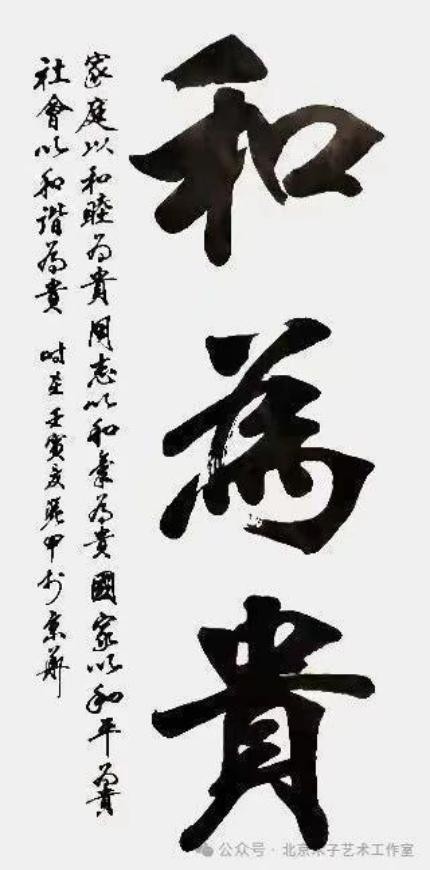 和為貴
家庭以和睦為貴同志以和氣為貴國家以和平為貴
社會以和諧為貴 時在壬寅夏張甲於京華
公众号·北京木子艺术工作室